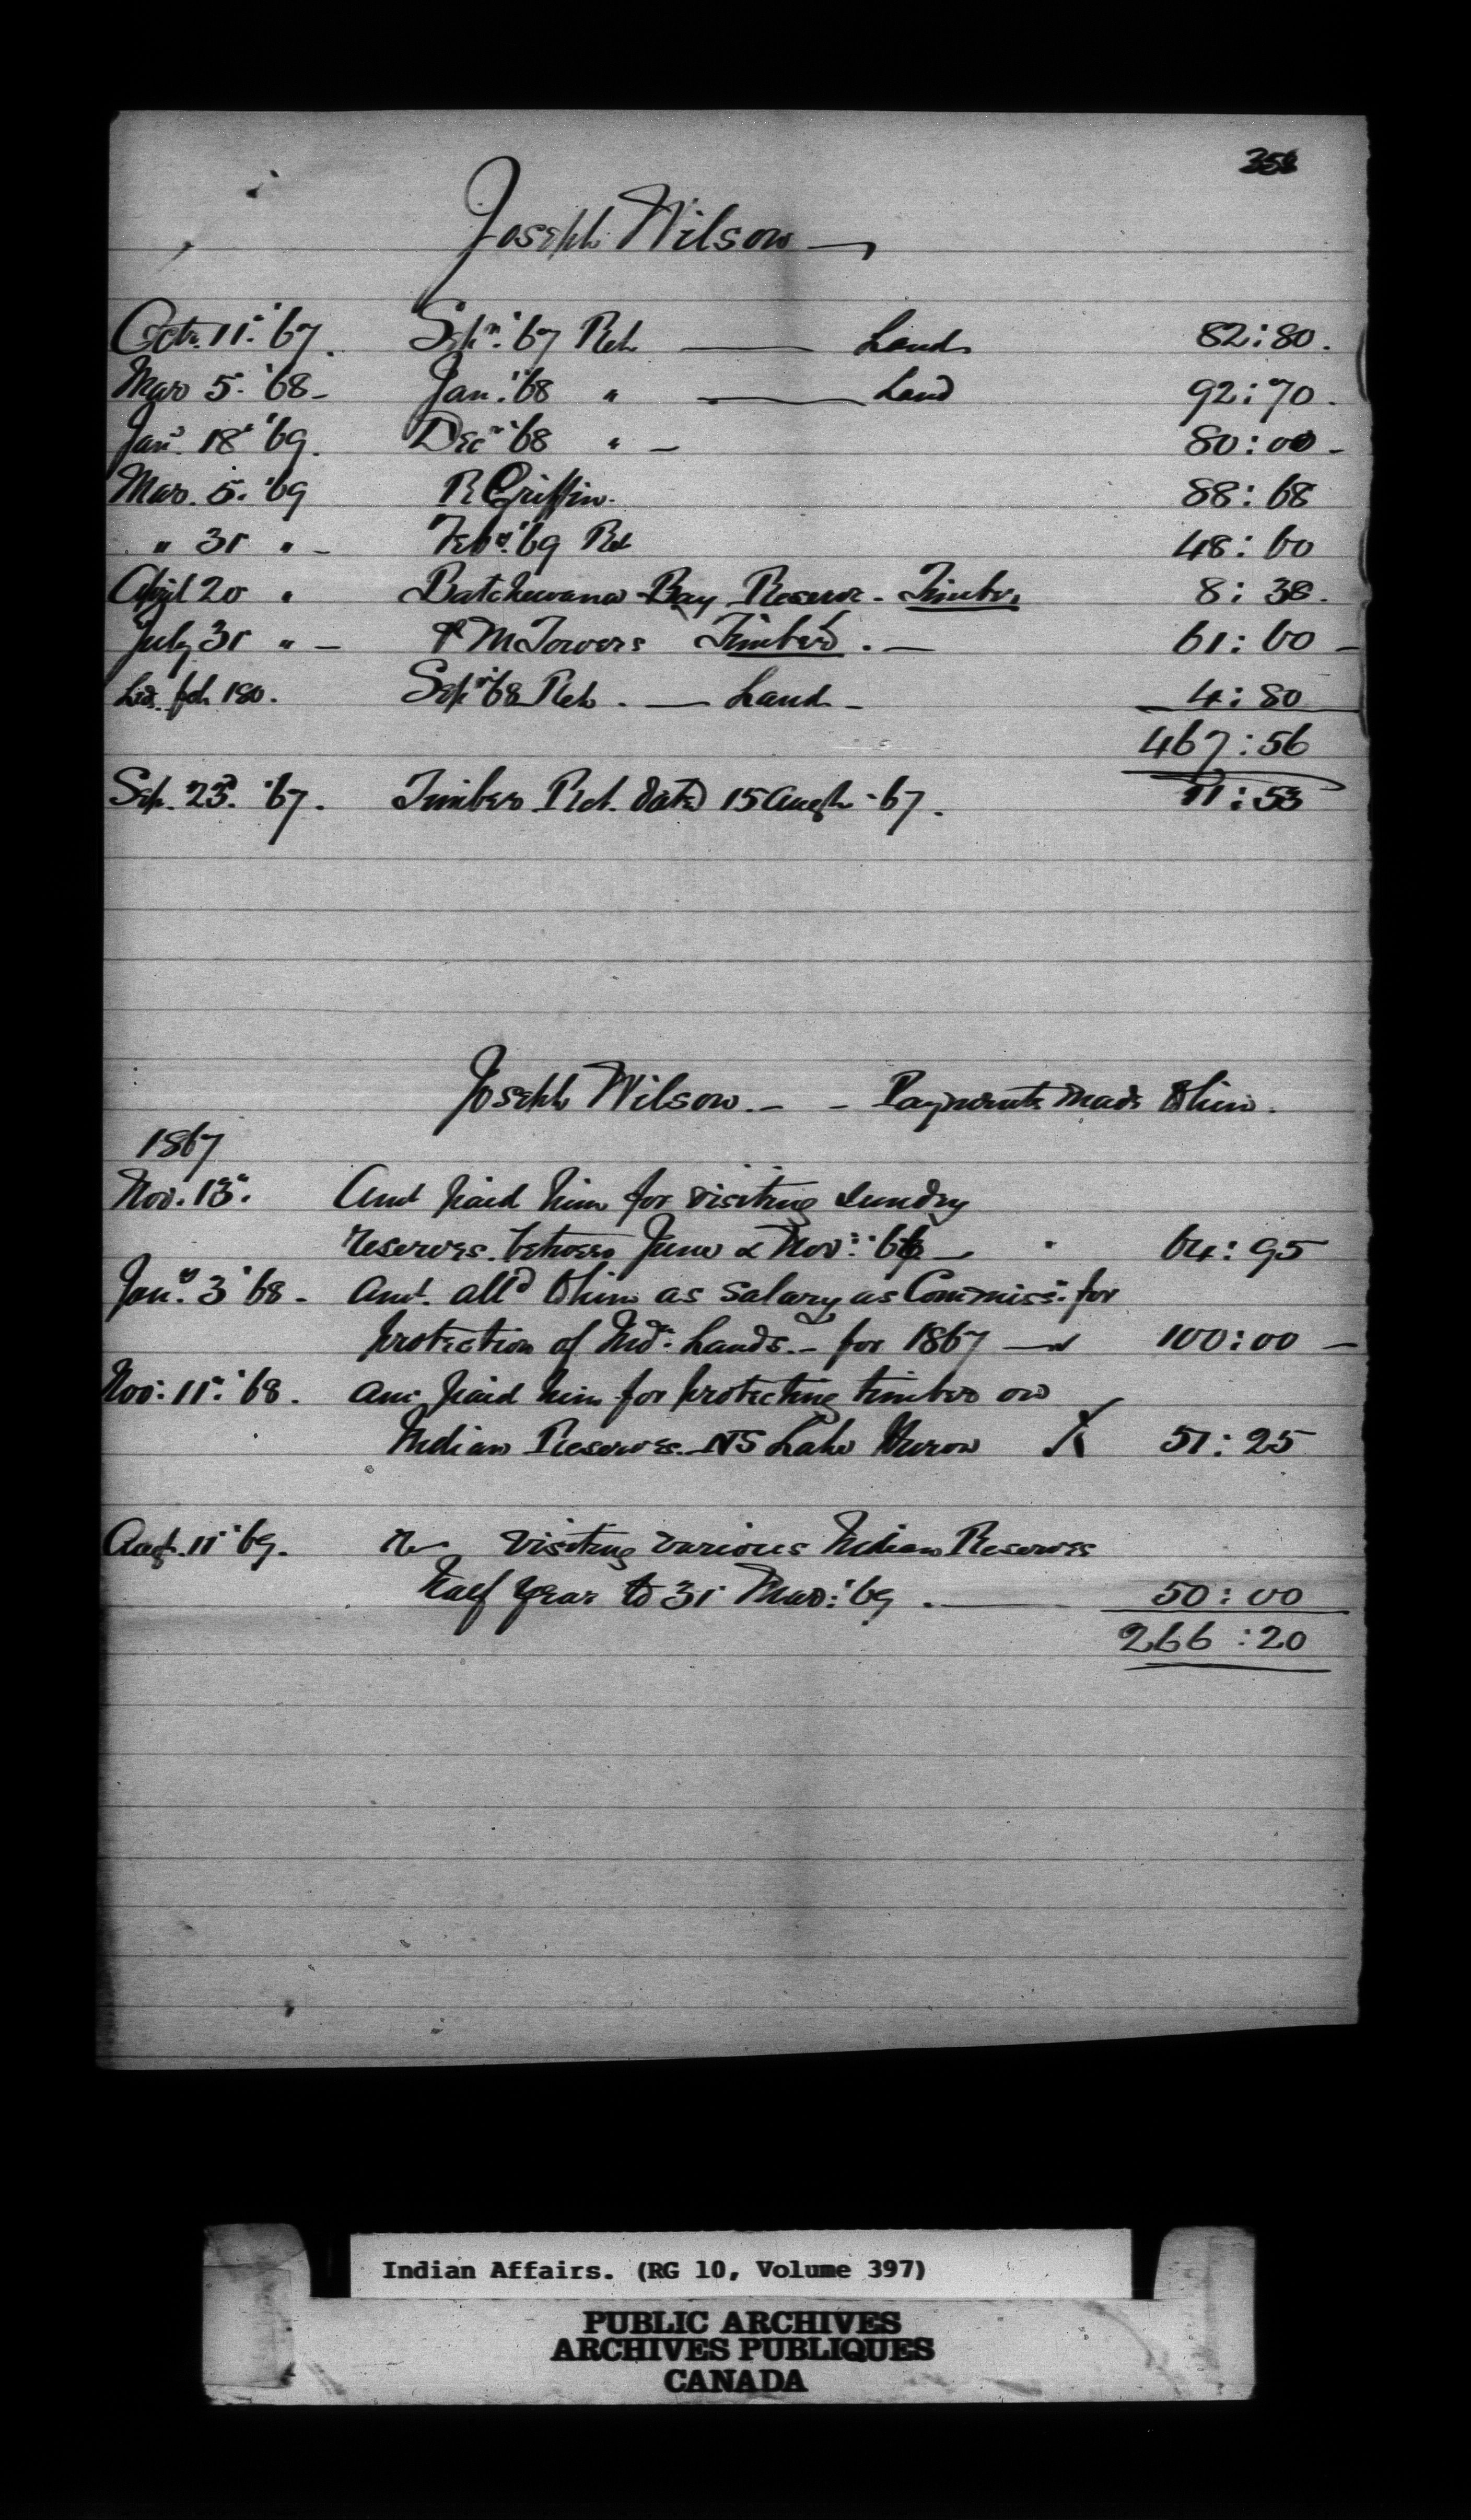 358
Joseph Wilson
Octr. 11. '67. Sepr. '67 Ret. Land 82:80.
Mar 5. '68 Jany. '68 " Land 92:70.
Jany. 18 '69. Decr '68 " 80:00
Mar. 5. '69 R Griffin. 88:68
" 31 " Feby. '69 Ret 48:60
Apl 20 " Batchewana Bay Reserve - Timber 8:38.
July 31 " P M Towers Timber. 61:60
Led. fol. 180. Sepr '68 Ret. Land 4:80
467:56
Sep. 23. '67. Timber Ret. dated 15 Augt '67. 11:53
Joseph Wilson. - - Payments made to him.
1867
Nov. 13. Amt paid him for visiting sundry
reserves. between June & Nov: '66 " 64:95
Jany. 3 '68 - Amt. alld to him as Salary as Commissr. for
protection of Indn: Lands. - for 1867 100:00
Nov: 11. '68. Amt paid him for protecting timber on
Indian Reserves. NS Lake Huron X 51:25
Augt. 11 '69. visiting various Indian Reserves
half year to 31 Mar: '69. 50:00
266:20
Indian Affairs. (RG 10, Volume 397)
PUBLIC ARCHIVES
ARCHIVES PUBLIQUES
CANADA